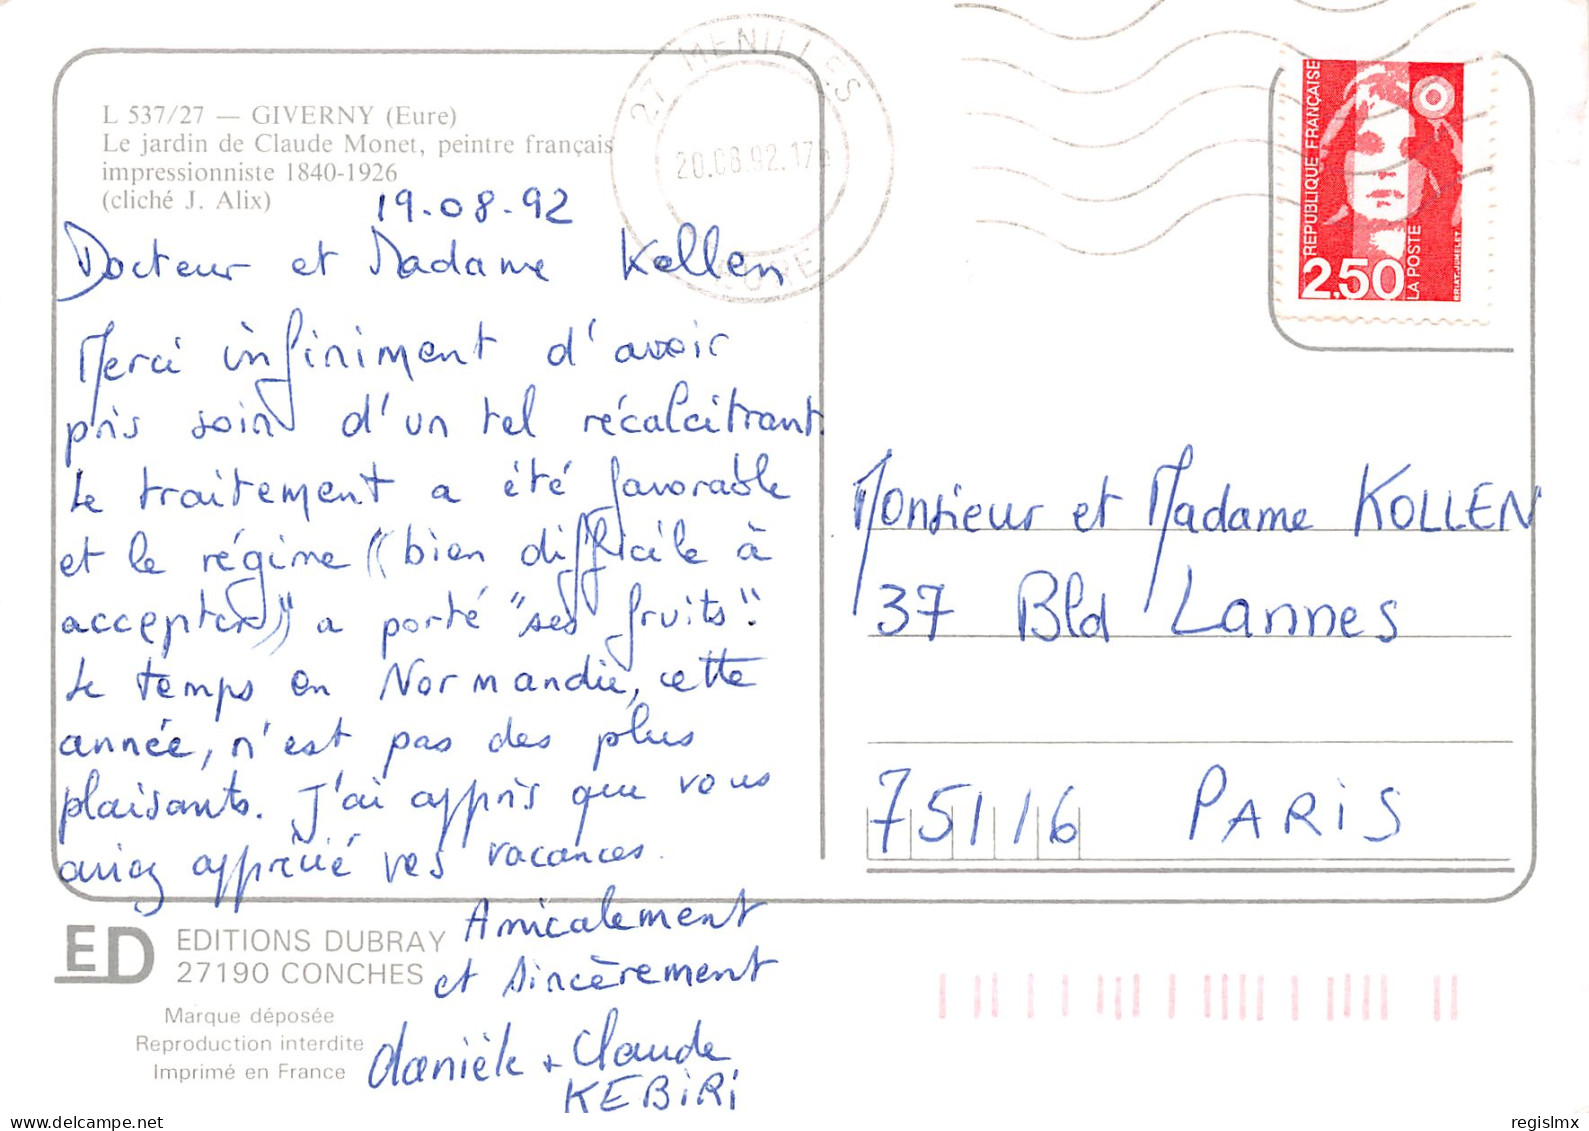 L 537/27 — GIVERNY (Eure)
Le jardin de Claude Monet, peintre français
impressionniste 1840-1926
(cliché J. Alix)
19.08.92
Docteur et Madame Kollen
Merci infiniment d'avoir
pris soin d'un tel récalcitrant.
Le traitement a été favorable
et le régime ((bien difficile à
accepter)) a porté "ses fruits".
Le temps en Normandie, cette
année, n'est pas des plus
plaisants. J'ai appris que vous
aviez apprécié ves vacances.
Amicalement
et sincèrement
danièle + Claude
KEBIRI
ED EDITIONS DUBRAY
27190 CONCHES
Marque déposée
Reproduction interdite
Imprimé en France
27 MENILLES
20.08.92.17h
EURE
REPUBLIQUE FRANÇAISE
2,50
LA POSTE
BRIAT-JUMELET
Monsieur et Madame KOLLEN
37 Bld Lannes
75116 PARIS
delcampe.net
regislmx